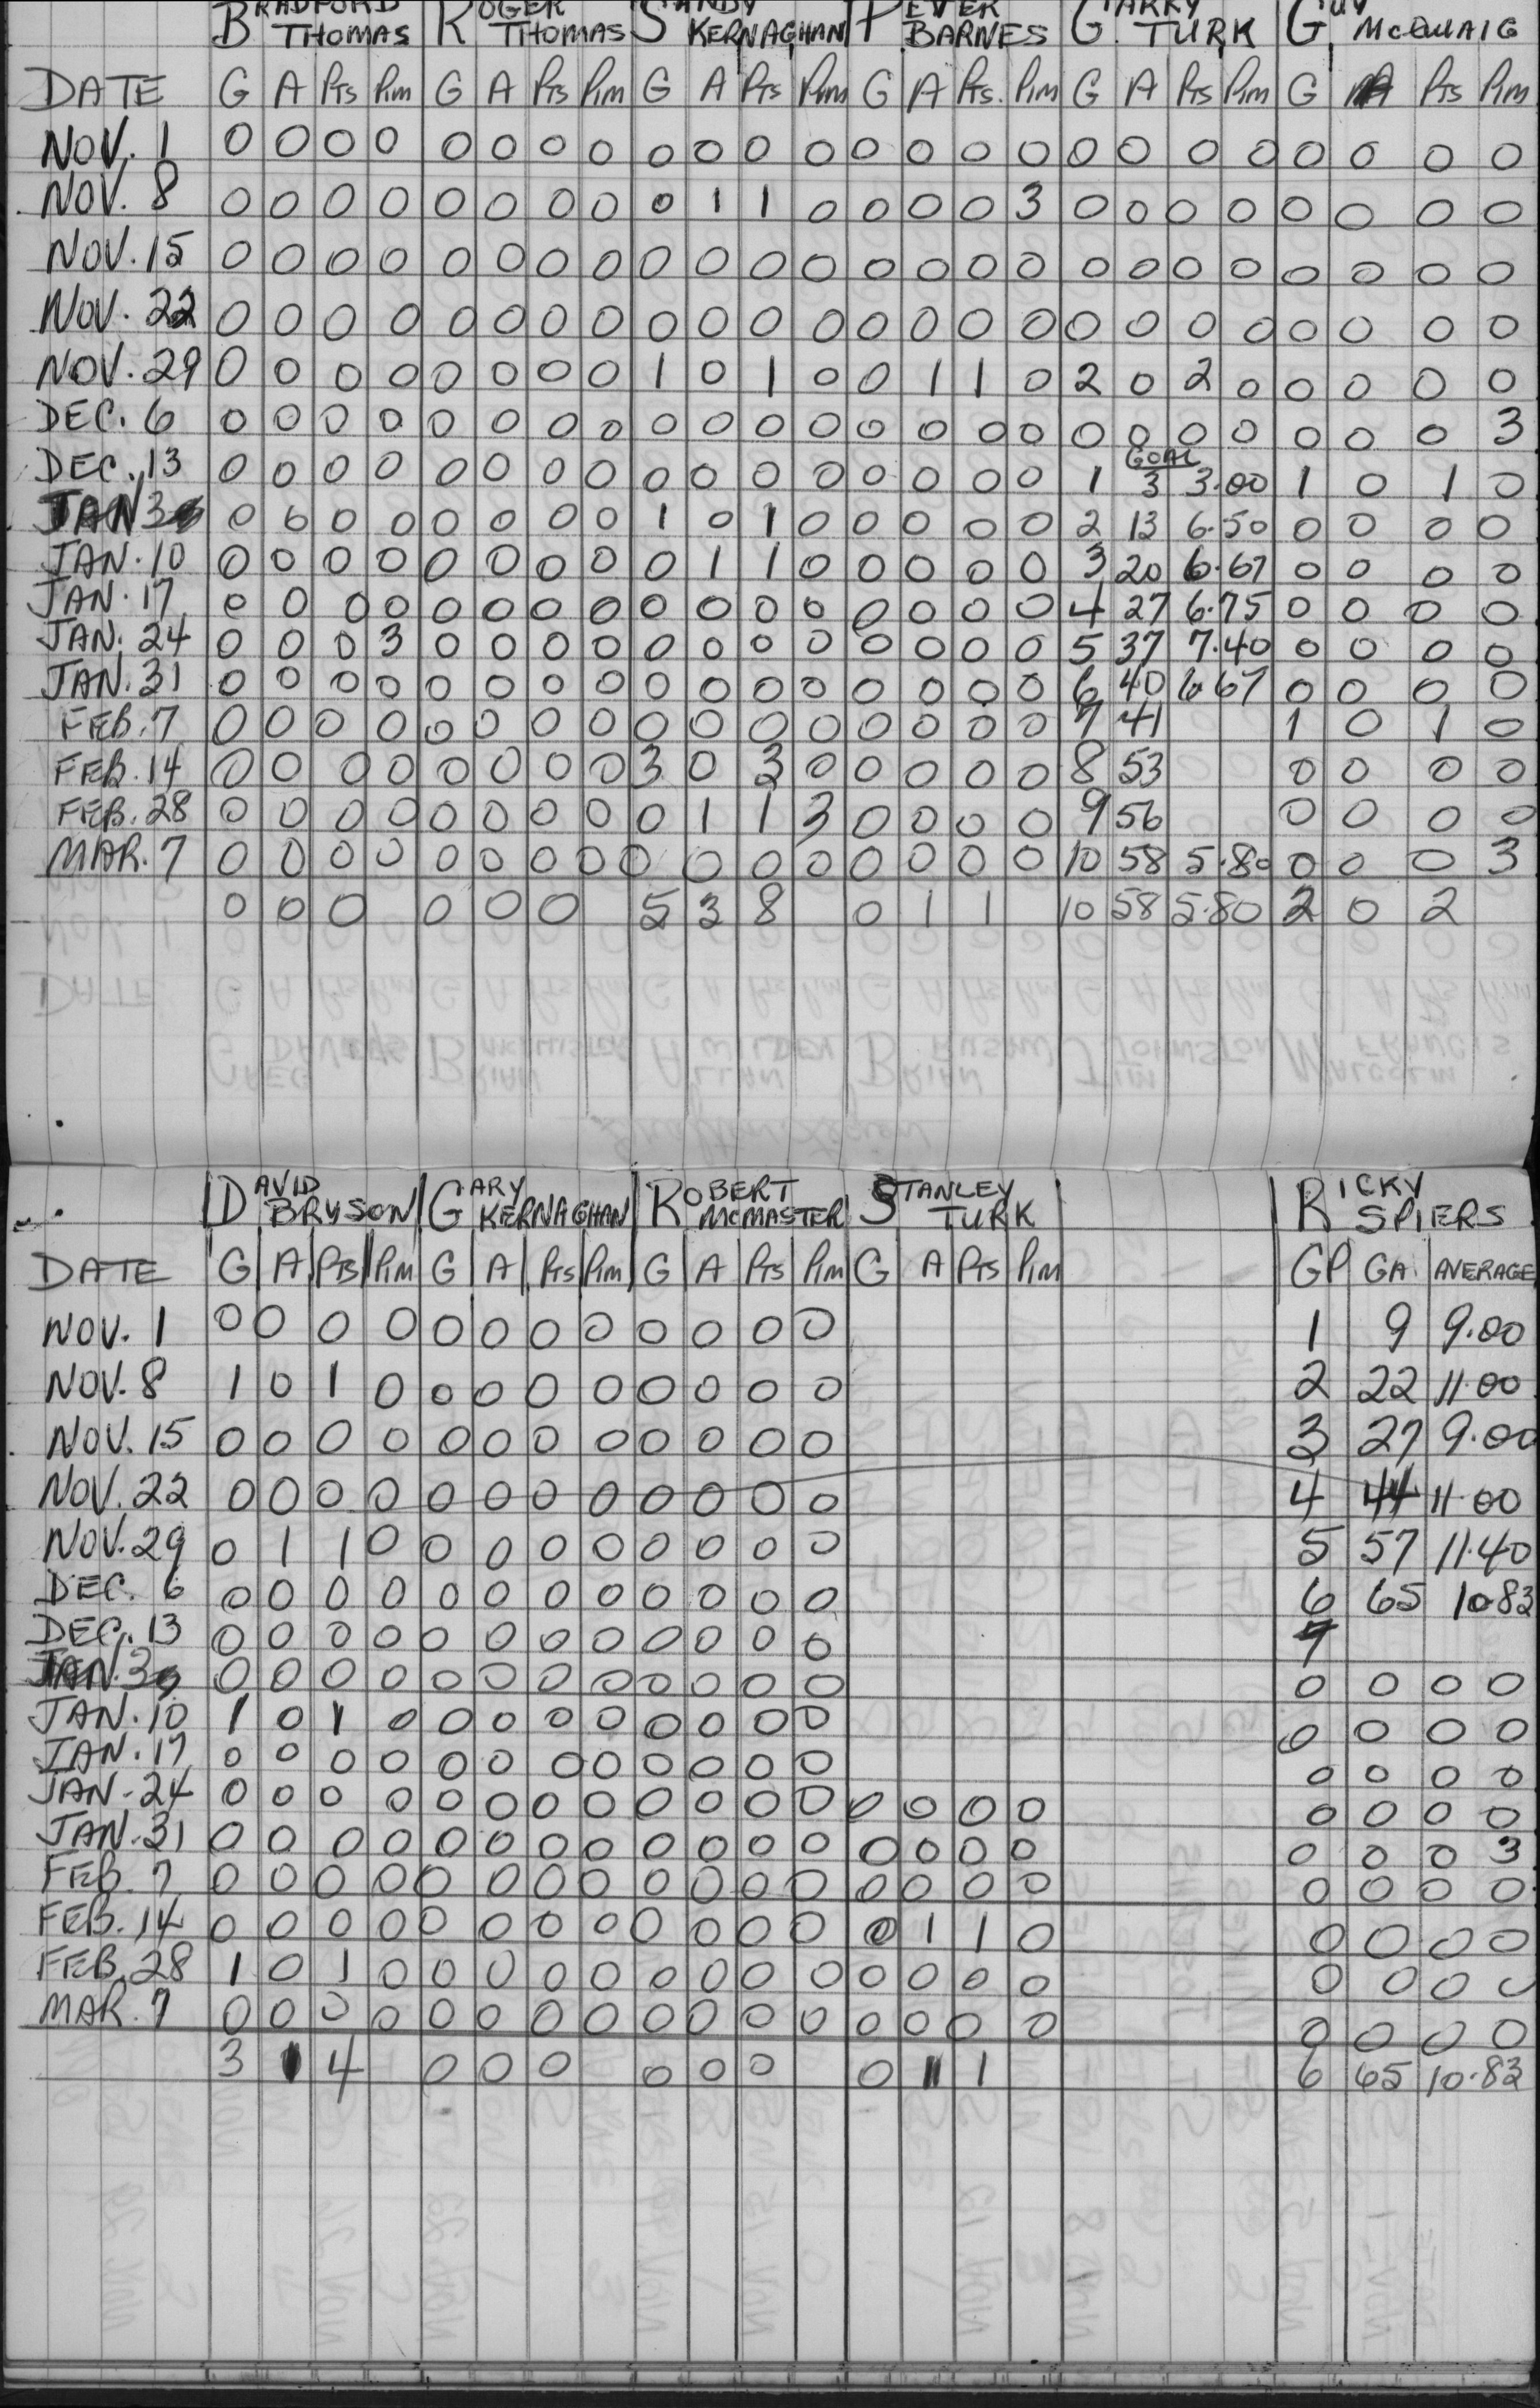 BRADFORD THOMAS ROGER THOMAS SANDY KERNAGHAN PETER BARNES GARRY TURK GUY McQUAIG
DATE G A Pts Pim G A Pts Pim G A Pts Pim G A Pts. Pim G A Pts Pim G A Pts Pim
NOV. 1 0 0 0 0 0 0 0 0 0 0 0 0 0 0 0 0 0 0 0 0 0 0 0 0
NOV. 8 0 0 0 0 0 0 0 0 0 1 1 0 0 0 0 3 0 0 0 0 0 0 0 0
NOV. 15 0 0 0 0 0 0 0 0 0 0 0 0 0 0 0 0 0 0 0 0 0 0 0 0
NOV. 22 0 0 0 0 0 0 0 0 0 0 0 0 0 0 0 0 0 0 0 0 0 0 0 0
NOV. 29 0 0 0 0 0 0 0 0 1 0 1 0 0 1 1 0 2 0 2 0 0 0 0 0
DEC. 6 0 0 0 0 0 0 0 0 0 0 0 0 0 0 0 0 0 0 0 0 0 0 0 3
GOAL
DEC. 13 0 0 0 0 0 0 0 0 0 0 0 0 0 0 0 0 1 3 3.00 1 0 1 0
JAN 3 0 0 0 0 0 0 0 0 1 0 1 0 0 0 0 0 2 13 6.50 0 0 0 0
JAN. 10 0 0 0 0 0 0 0 0 0 1 1 0 0 0 0 0 3 20 6.67 0 0 0 0
JAN. 17 0 0 0 0 0 0 0 0 0 0 0 0 0 0 0 0 4 27 6.75 0 0 0 0
JAN. 24 0 0 0 3 0 0 0 0 0 0 0 0 0 0 0 0 5 37 7.40 0 0 0 0
JAN. 31 0 0 0 0 0 0 0 0 0 0 0 0 0 0 0 0 6 40 6.67 0 0 0 0
FEB. 7 0 0 0 0 0 0 0 0 0 0 0 0 0 0 0 0 7 41 1 0 1 0
FEB. 14 0 0 0 0 0 0 0 0 3 0 3 0 0 0 0 0 8 53 0 0 0 0
FEB. 28 0 0 0 0 0 0 0 0 0 1 1 3 0 0 0 0 9 56 0 0 0 0
MAR. 7 0 0 0 0 0 0 0 0 0 0 0 0 0 0 0 0 10 58 5.80 0 0 0 3
0 0 0 0 0 0 5 3 8 0 1 1 10 58 5.80 2 0 2
DAVID BRYSON GARY KERNAGHAN ROBERT McMASTER STANLEY TURK RICKY SPIERS
DATE G A Pts Pim G A Pts Pim G A Pts Pim G A Pts Pim GP GA. AVERAGE
NOV. 1 0 0 0 0 0 0 0 0 0 0 0 0 1 9 9.00
NOV. 8 1 0 1 0 0 0 0 0 0 0 0 0 2 22 11.00
NOV. 15 0 0 0 0 0 0 0 0 0 0 0 0 3 27 9.00
NOV. 22 0 0 0 0 0 0 0 0 0 0 0 0 4 44 11.00
NOV. 29 0 1 1 0 0 0 0 0 0 0 0 0 5 57 11.40
DEC. 6 0 0 0 0 0 0 0 0 0 0 0 0 6 65 10.83
DEC. 13 0 0 0 0 0 0 0 0 0 0 0 0 7
JAN. 3 0 0 0 0 0 0 0 0 0 0 0 0 0 0 0 0
JAN. 10 1 0 1 0 0 0 0 0 0 0 0 0 0 0 0 0
JAN. 17 0 0 0 0 0 0 0 0 0 0 0 0 0 0 0 0
JAN. 24 0 0 0 0 0 0 0 0 0 0 0 0 0 0 0 0 0 0 0 0
JAN. 31 0 0 0 0 0 0 0 0 0 0 0 0 0 0 0 0 0 0 0 3
FEB. 7 0 0 0 0 0 0 0 0 0 0 0 0 0 0 0 0 0 0 0 0
FEB. 14 0 0 0 0 0 0 0 0 0 0 0 0 0 1 1 0 0 0 0 0
FEB. 28 1 0 1 0 0 0 0 0 0 0 0 0 0 0 0 0 0 0 0 0
MAR. 7 0 0 0 0 0 0 0 0 0 0 0 0 0 0 0 0 0 0 0 0
3 1 4 0 0 0 0 0 0 0 1 1 6 65 10.83